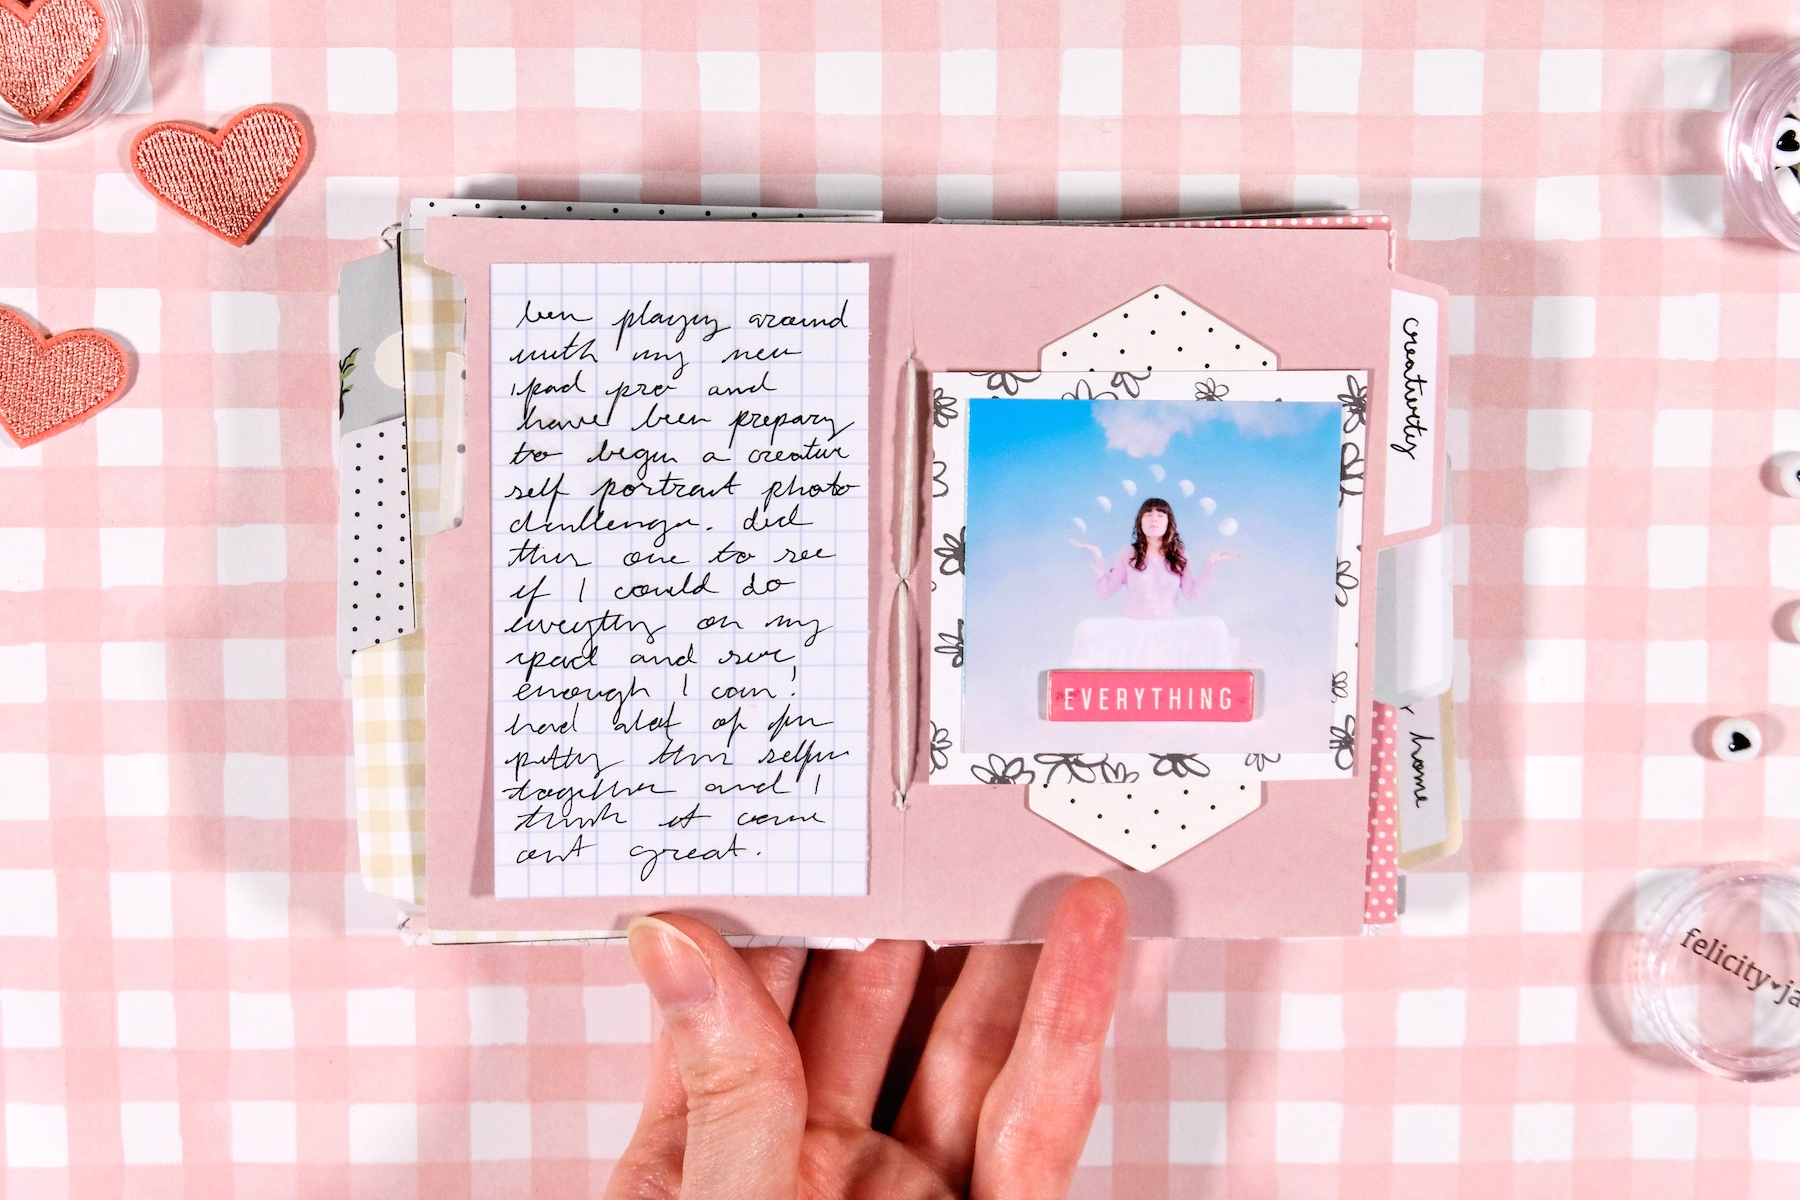 been playing around
with my new
ipad pro and
have been preparing
to begin a creative
self portrait photo
challenge. did
this one to see
if I could do
everything on my
ipad and sure
enough I can!
had alot of fun
putting this selfie
together and I
think it came
out great.
EVERYTHING
creativity
home
felicity ja